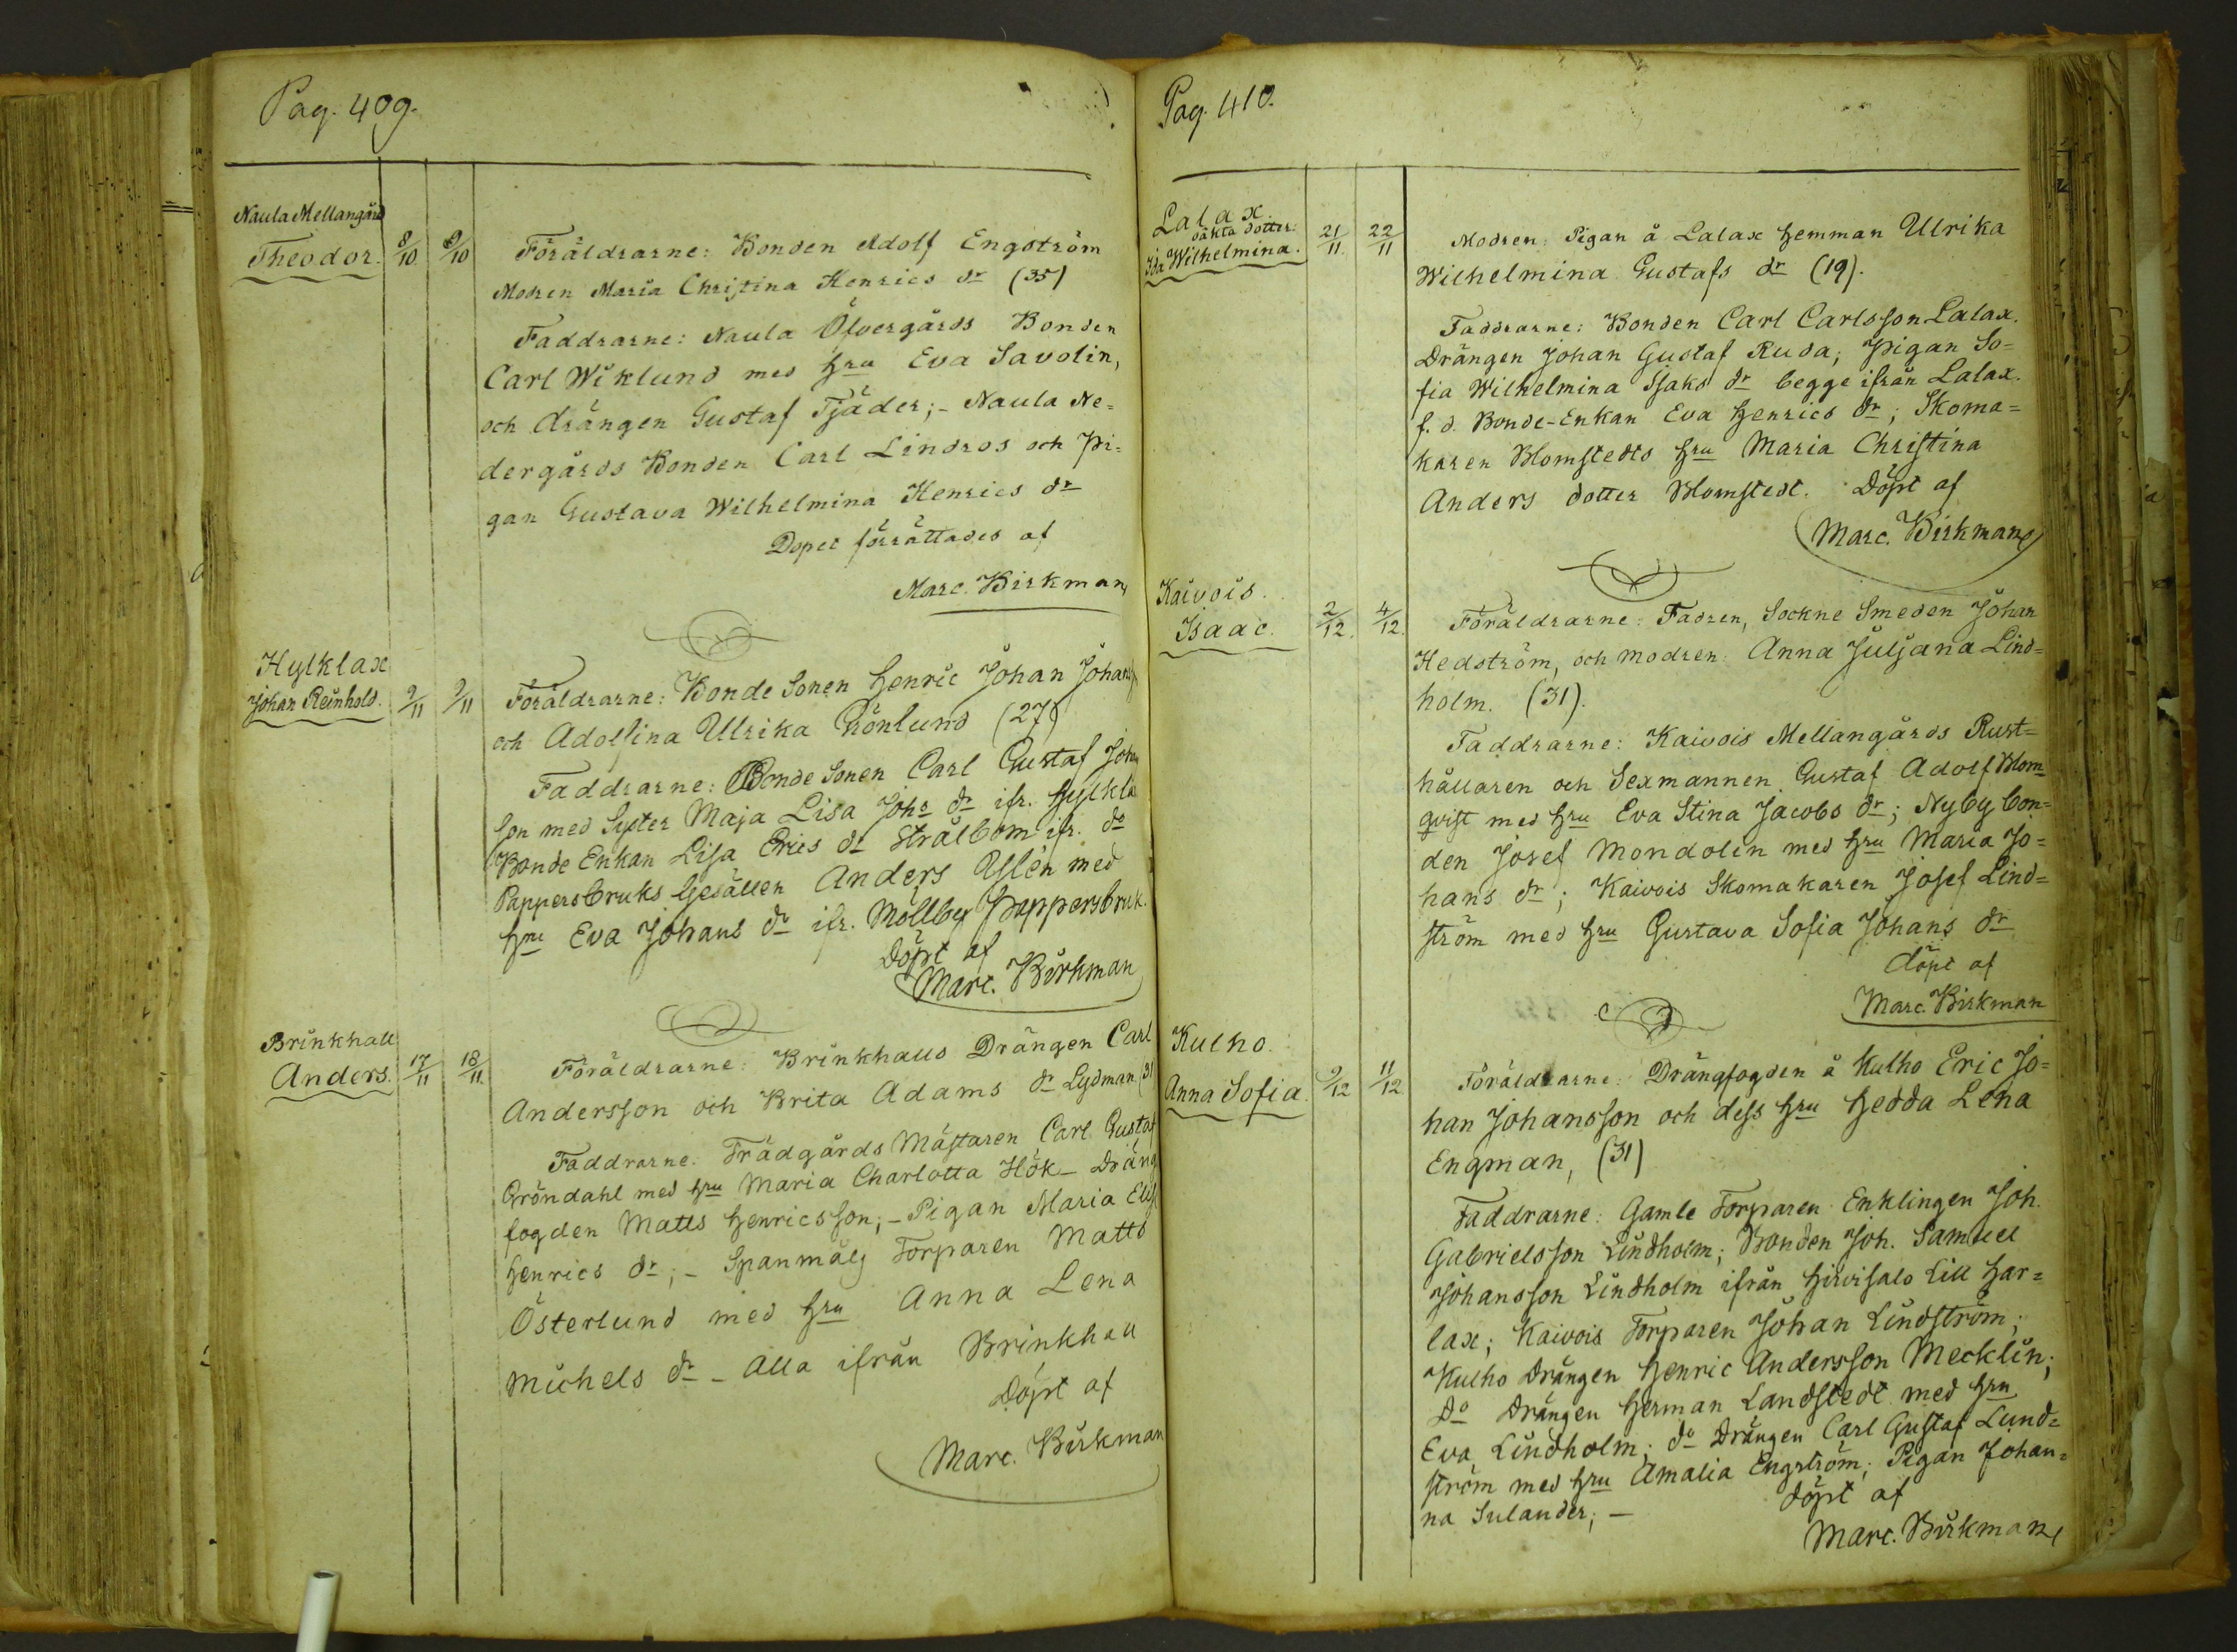 Pag. 409.
Naula Mellangård
Theodor. 8/10 9/10
Föräldrarne: Bonden Adolf Engström
Modren Maria Christina Henrics dr (35)
Faddrarne: Naula Öfvergårds Bonden
Carl Wiklund med hru Eva Savolin,
och drängen Gustaf Tjäder; - Naula Ne=
dergårds Bonden Carl Lindros och Pi=
gan Gustava Wilhelmina Henrics dr
Dopet förrättades af
Marc. Birkman
Hylklax
Johan Reinhold. 9/11 9/11
Föräldrarne: Bonde Sonen Henric Johan Johans
och Adolfina Ulrika Grönlund (27)
Faddrarne: Bonde Sonen Carl Gustaf Joh
son med Syster Maja Lisa Johs dr ifr. Hylkla
Bonde Enkan Lisa Erics dr Strålbom ifr. do
Pappersbruks Gesällen Anders Uslén med
hru Eva Johans dr ifr. Möllby Pappersbruk.
Döpt af
Marc. Birkman
Brinkhall
Anders. 17/11 18/11.
Föräldrarne: Brinkhalls Drängen Carl
Andersson och Brita Adams dr Lydman (31
Faddrarne: Trädgårds Mästaren Carl Gustaf
Gröndahl med hru Maria Charlotta Hök - Dräng
fogden Matts Henricsson; - Pigan Maria Elis
Henrics dr; - Spanmäls Torparen Matts
Österlund med hru Anna Lena
Michels dr - Alla ifrån Brinkhall
Döpt af
Marc. Birkman
Pag. 410.
Lalax.
oäkta dotter.
Ida Wilhelmina. 21/11. 22/11
Modren: Pigan å Lalax Hemman Ulrika
Wilhelmina Gustafs dr (19).
Faddrarne: Bonden Carl Carlsson Lalax.
Drängen Johan Gustaf Ruda; Pigan So=
fia Wilhelmina Isaks dr begge ifrån Lalax.
f. d. Bonde-Enkan Eva Henrics dr; Skoma=
karen Blomstedts hru Maria Christina
Anders dotter Blomstedt. Döpt af
Marc. Birkman
Kaivois.
Isaac. 2/12. 4/12.
Föräldrarne: Fadren, Sockne Smeden Johan
Hedström, och modren: Anna Juljana Lind=
holm. (31).
Faddrarne: Kaivois Mellangårds Rust=
hållaren och Sexmannen Gustaf Adolf Blom
qvist med hru Eva Stina Jacobs dr; Nyby bon=
den Josef Mondolin med hru Maria Jo=
hans dr; Kaivois Skomakaren Josef Lind=
ström med hru Gustava Sofia Johans dr
döpt af
Marc. Birkman
Kulho.
Anna Sofia. 9/12 11/12
Föräldrarne: Drängfogden å Kulho Eric Jo=
han Johansson och dess hru Hedda Lena
Engman, (31)
Faddrarne: Gamle Torparen Enklingen Joh.
Gabrielsson Lindholm; Bonden Joh. Samuel
Johansson Lindholm ifrån Hirvisalo Lill Har=
lax; Kaivois Torparen Johan Lindström;
Kulho Drängen Henric Andersson Mecklin;
Do Drängen Herman Landstedt med hru
Eva Lindholm; do Drängen Carl Gustaf Lund=
ström med hru Amalia Engström; Pigan Johan=
na Sulander; -
döpt af
Marc. Birkman